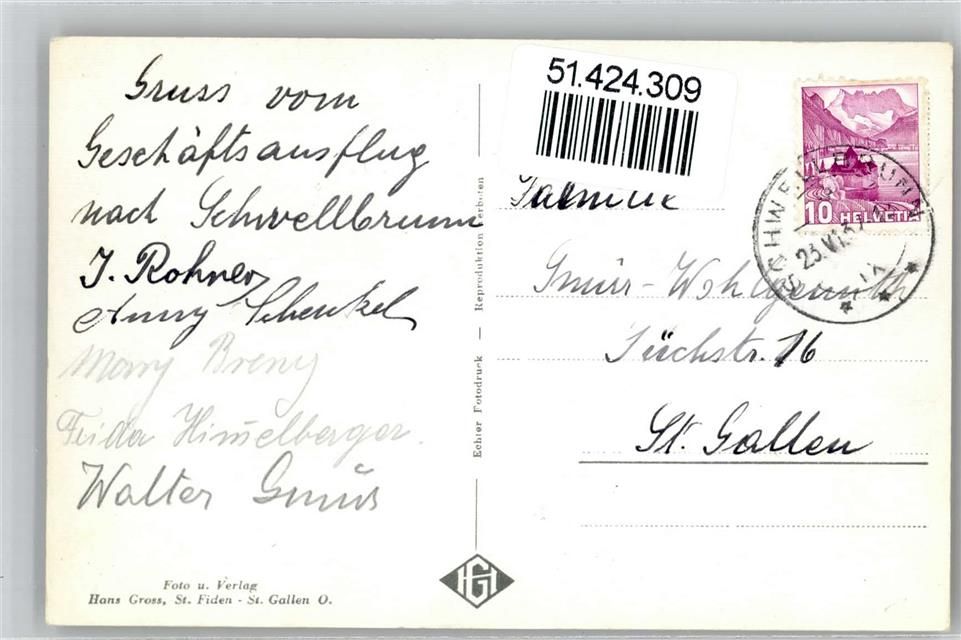 Gruss vom
Geschäftsausflug
nach Schwellbrunn
J. Rohner
Anny Schenkel
Mary Breny
Frida Himelberger.
Walter Gmür
Foto u. Verlag
Hans Gross, St. Fiden - St. Gallen O.
Echter Fotodruck — Reproduktion verboten
HG
51.424.309
Familie
Gmür-Wohlgemuth
St. Gallen
10 HELVETIA
SCHWELLBRUNN
23.VI.37
IX